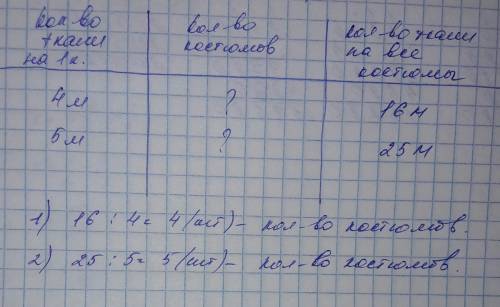 кол-во ткани на 1 к.
кол-во костюмов
кол-во ткани на все костюмы
4м ? 16м
5м ? 25м
1) 16 : 4 = 4 (шт) - кол-во костюмов.
2) 25 : 5 = 5 (шт) - кол-во костюмов.